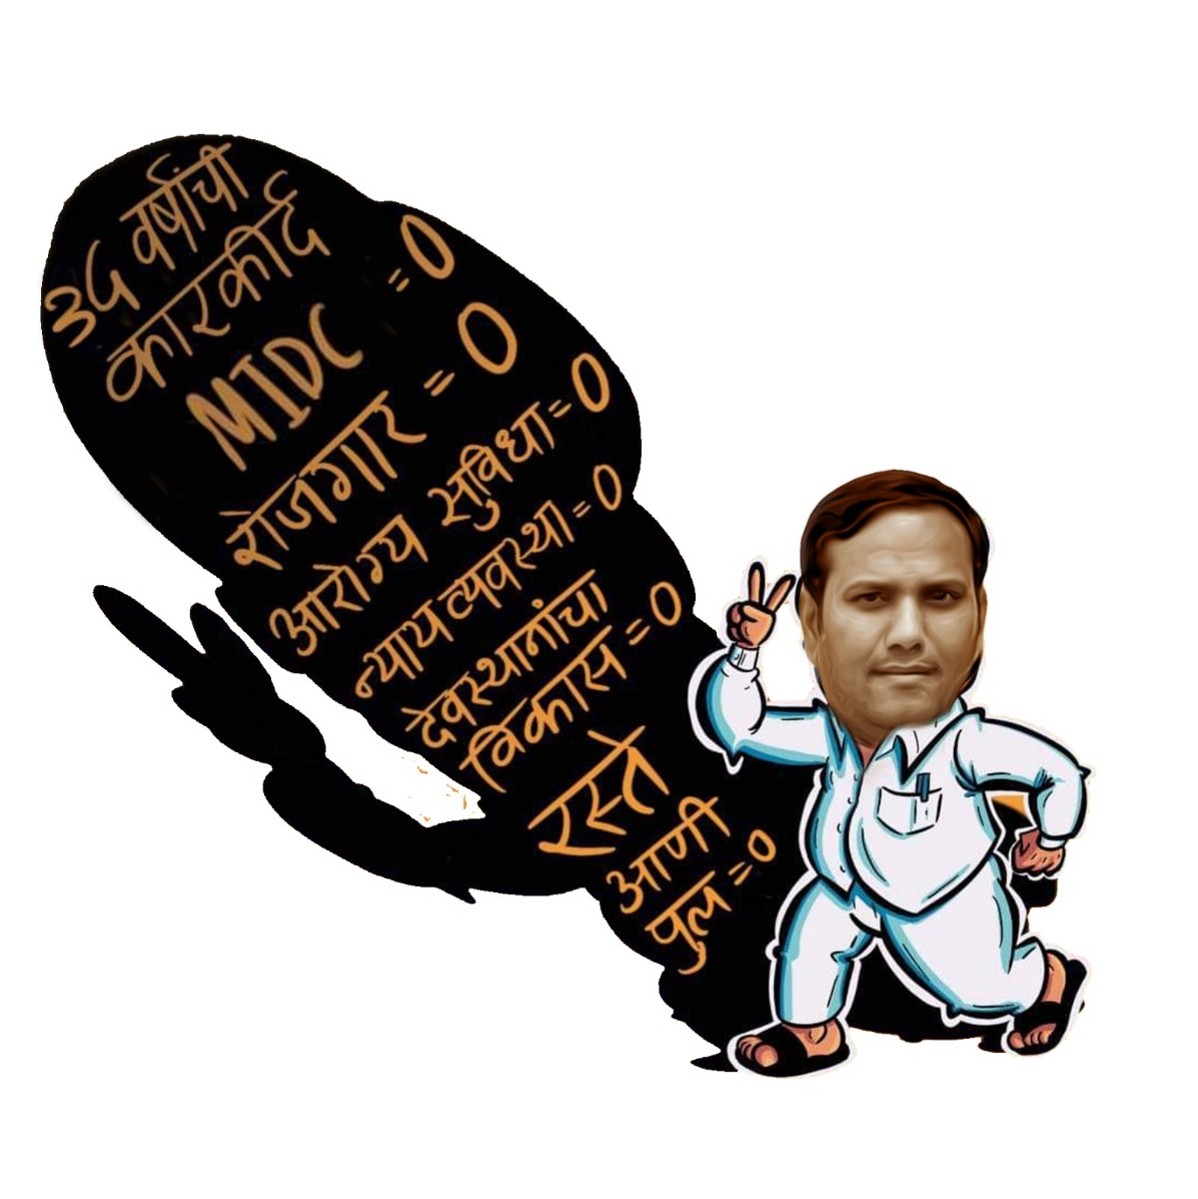 ३५ वर्षांची
कारकीर्द
MIDC = 0
रोजगार = 0
आरोग्य सुविधा = 0
न्यायव्यवस्था = 0
देवस्थानांचा
विकास = 0
रस्ते
आणी
पुल = 0